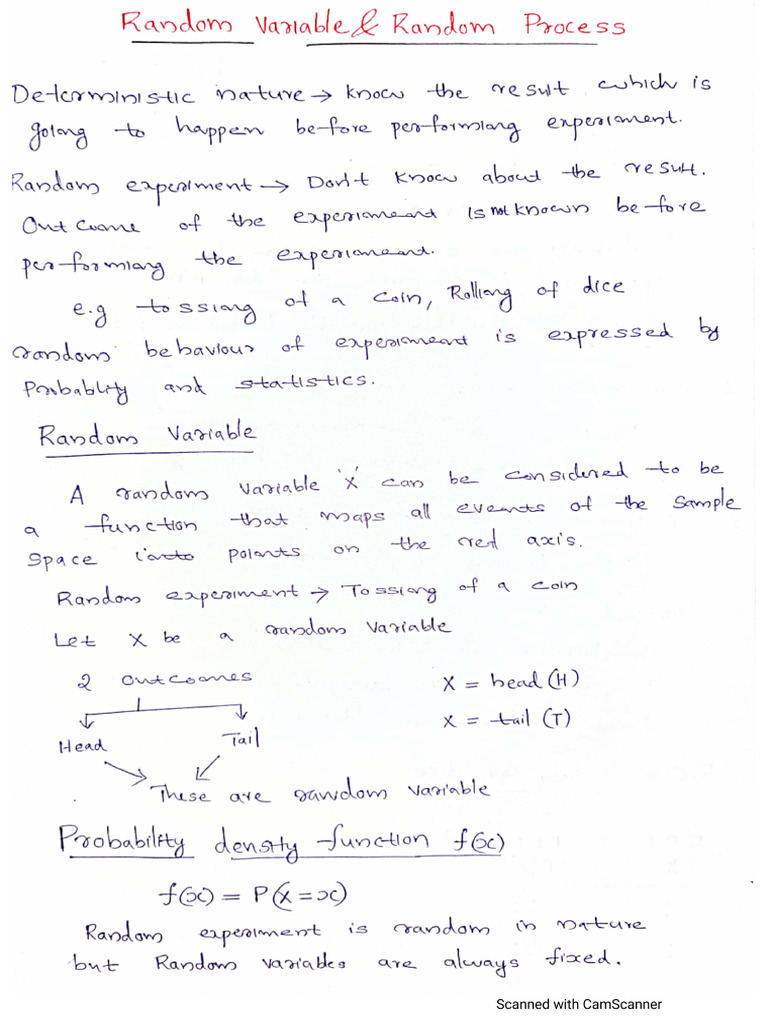 Random Variable & Random Process
Deterministic nature → know the result which is
going to happen before performing experiment.
Random experiment → Don't know about the result.
Outcome of the experiment is not known before
performing the experiment.
e.g tossing of a coin, Rolling of dice
random behaviour of experiment is expressed by
Probablity and statistics.
Random Variable
A random variable 'X' can be considered to be
a function that maps all events of the sample
space into points on the real axis.
Random experiment → Tossing of a coin
Let X be a random variable
2 outcomes
X = head (H)
X = tail (T)
Head Tail
These are random variable
Probability density function f(x)
f(x) = P(X = x)
Random experiment is random in nature
but Random variables are always fixed.
Scanned with CamScanner